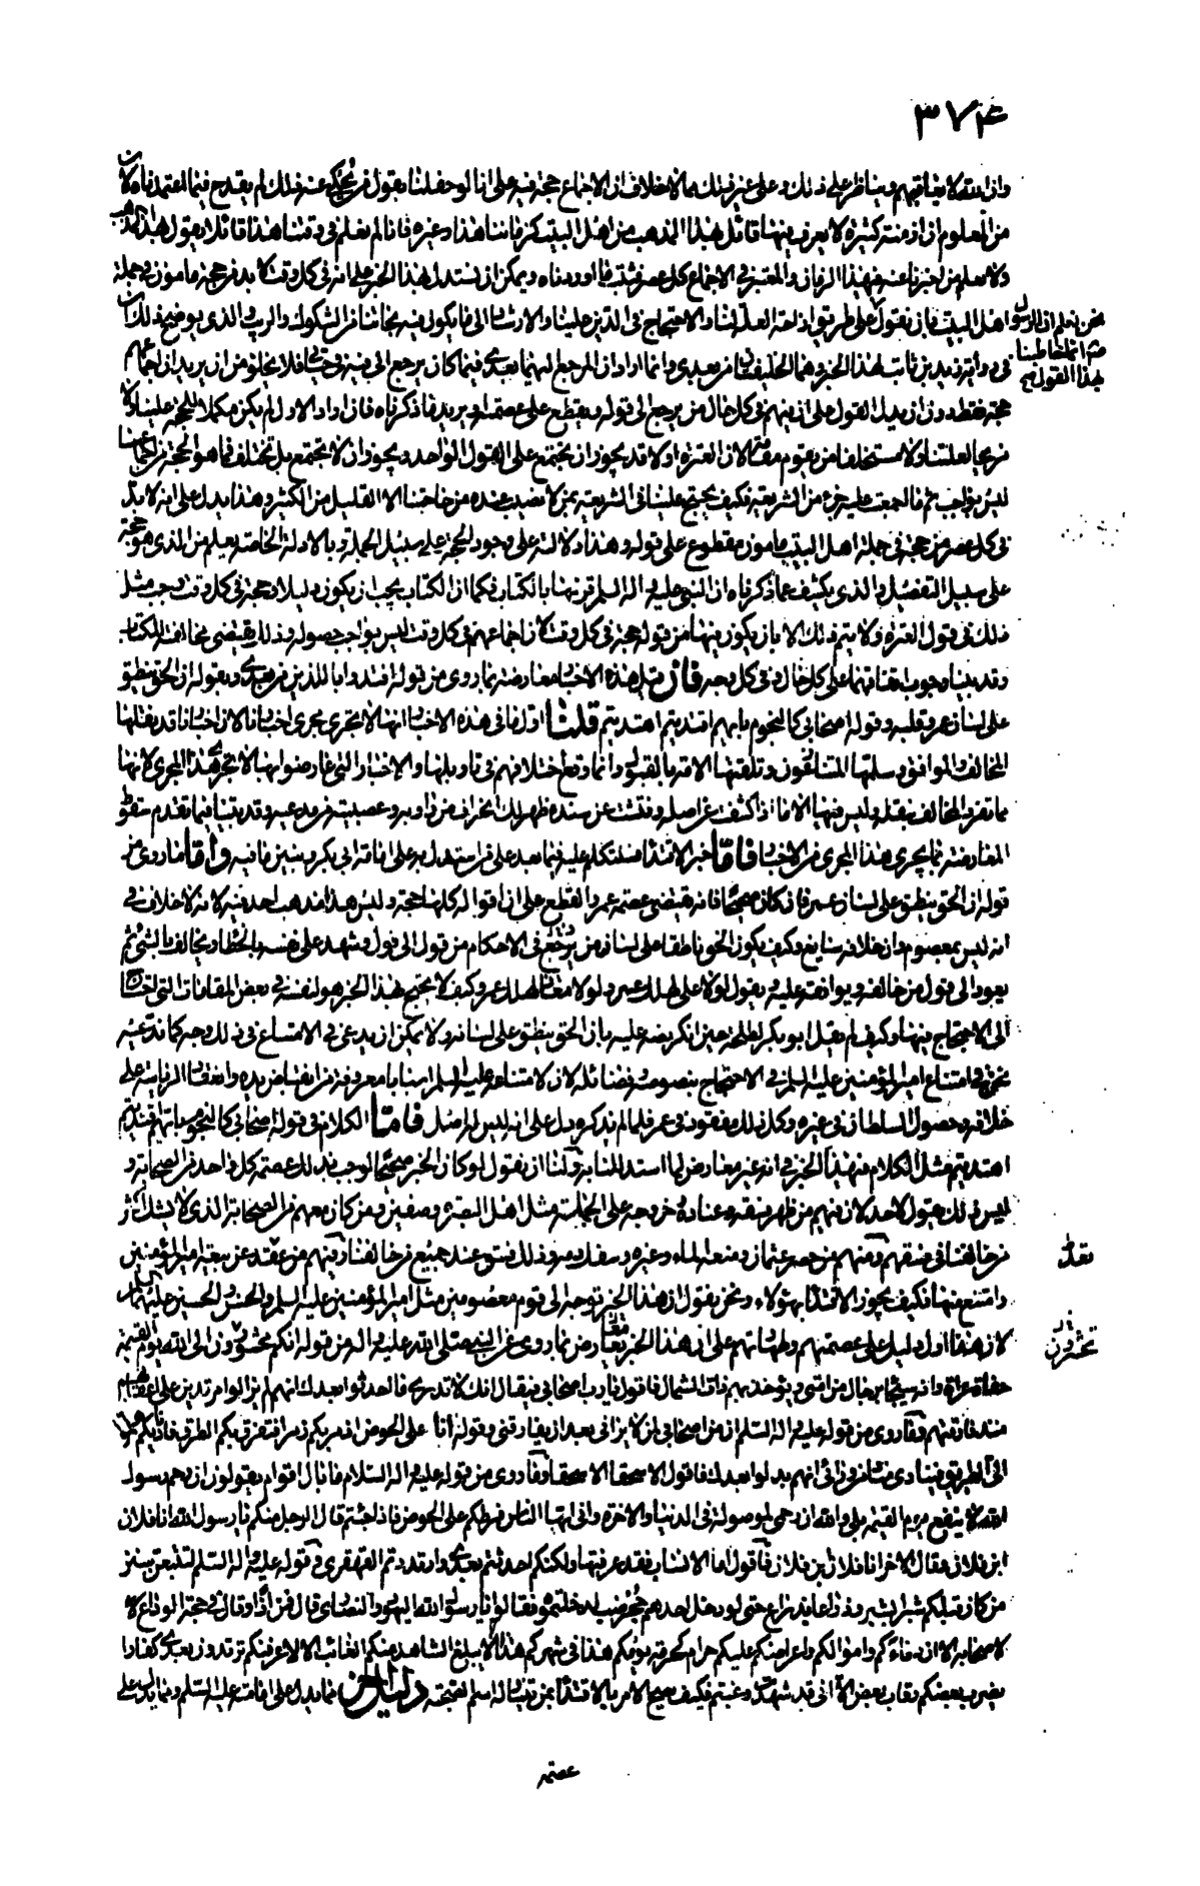 ٣٧٤
من المعلوم ان ازمنة كثيرة لا يعرف فيها قائل بهذا المذهب من اهل البيت كزماننا هذا وغيره فانا لم نعلم في وقتنا هذا قائلا يقول بهذا المذهب
ولا اسلم من خبرنا عنه فهذا الزمان والمعتبر في الاجماع كل عصر فثبت ما اوردناه ويمكن ان نستدل بهذا الخبر على انه في كل وقت لا بد من حجة مامون في جملة
اهل البيت بان نقول على طريق ازاحة العلة لنا والاحتجاج في الدين علينا والارشاد الى ما يكون فيه نجاتنا من الشكوك والريب والذي يوضح ذلك ان
نحن نعلم ان الرسول
انما خاطبنا
بهذا القول
في رواية زيد بن ثابت هذا الخبر وهما الخليفتان من بعدي وانما اراد ان المرجع اليهما بعدي فيما كان يرجع الي فيه في حياتي فلا يخلو من ان يريد ان اجماعهم
حجة فقط دون ان يدل القول على ان فيهم في كل حال من يرجع الى قوله ويقطع على عصمته او يريد ما ذكرناه فان اراد الاول لم يكن مكملا للحجة علينا ولا
مزيحا لعلتنا ولا مستخلفا من يقوم مقامه لان العترة اولا قد يجوز ان تجتمع على القول الواحد ويجوز ان لا تجتمع بل تختلف فما هو الحجة من اجماعها
ليس بواجب ثم ما اجمعت عليه جزء من الشريعة فكيف يحتج علينا في الشريعة بمن لا نصيب عنده من حاجتنا الا القليل من الكثير وهذا يدل على انه لا بد
في كل عصر من حجة في جملة اهل البيت مامون مقطوع على قوله وهذا دلالة على وجود الحجة على سبيل الجملة وبالادلة الخاصة يعلم من الذي هو حجة
على سبيل التفصيل والذي يكشف عما ذكرناه ان النبي عليه واله السلم قرنها بالكتاب فكما ان الكتاب يجب ان يكون دليلا وحجة في كل وقت وجب مثل
ذلك في قول العترة ولا يتم ذلك الا بان يكون فيها من قوله حجة في كل وقت لان اجماعهم في كل وقت ليس بواجب حصوله وذلك يقتضي مخالفة للكتاب
وقد بينا وجوب اتفاقهما على كل حال وفي كل وجه فان قيل هذه الاخبار معارضة بما روي من قوله اقتدوا باللذين من بعدي وبقوله ان الحق ينطق
على لسان عمر وقلبه وقوله اصحابي كالنجوم بايهم اقتديتم اهتديتم قلنا اول ما في هذه الاخبار انها لا تجري مجرى اخبارنا لان اخبارنا قد نقلها
المخالف والموافق وسلمها المتنازعون وتلقتها الامة بالقبول وانما وقع اختلافهم في تاويلها والاخبار التي عارضوا بها لا تجري هذا المجرى لانها
مما تفرد المخالف بنقله وليس فيها الا ما اذا كشفت عن اصله وفتشت عن سنده ظهر لك انحراف من راويه وعصبية من مدعيه وقد بينا فيما تقدم سقوط
المعارضة بما يجري هذا المجرى من الاخبار فاما خبر الاقتداء فسنتكلم عليه فيما بعد على من استدل به على امامة ابي بكر ونبين ما فيه واما ما روي من
قوله ان الحق ينطق على لسان عمر فان كان صحيحا فانه يقتضي عصمة عمر والقطع على ان اقواله كلها حجة وليس هذا مذهب احد فيه لانه لا خلاف في
انه ليس بمعصوم وان خلافه سايغ وكيف يكون الحق ناطقا على لسان من يرجع في الاحكام من قول الى قول ويشهد على نفسه بالخطاء ويخالف بالشيء ثم
يعود الى قول من خالفه ويوافقه عليه ويقول لولا علي لهلك عمر ولولا معاذ لهلك عمر وكيف لا يحتج بهذا الخبر هو لنفسه في بعض المقامات التي احتاج
الى الاحتجاج فيها وكيف لم يقل ابو بكر لطلحة حين انكر نصه عليه بان الحق ينطق على لسانه ولا يمكن ان يدعى في الامتناع في ذلك وجه كما ندعيه
نحن في امتناع امير المؤمنين عليه السلم في الاحتجاج بنصوصه وفضائله لان لامتناعه عليه السلم اسبابا معروفة من انقباض يده واتفاق الرياسة على
خلافه وحصول السلطان في غيره وكل ذلك مفقود في عمر فلما لم يذكره دل على انه ليس له اصل فاما الكلام في قوله اصحابي كالنجوم بايهم اقتديتم
اهتديتم فمثل الكلام في هذا الخبر في انه غير معارض لما استدللنا به ولنا ان نقول لو كان الخبر صحيحا لوجب بذلك عصمة كل واحد من الصحابة و
ليس ذلك بقول لاحد لان فيهم من ظهر فسقه وعناده وخروجه على الجماعة مثل اهل البصرة وصفين ومن كان معهم من الصحابة الذي لا يشك اكثر
من خالفنا في فسقهم ومنهم من حصر عثمان ومنعه الماء وغيره وسفك دمه وذلك فسق عند جميع من خالفنا وفيهم من قعد عن بيعة امير المؤمنين
تعدى
وامتنع منها فكيف يجوز الاقتداء بهؤلاء ونحن نقول ان هذا الخبر توجه الى قوم معصومين مثل امير المؤمنين عليه السلم والحسن والحسين عليهما السلم
لان هذا اول دليل على عصمتهم وطهارتهم على ان هذا الخبر معارض بما روي عن النبي صلى الله عليه واله من قوله انكم محشورون الى الله يوم القيمة
تحشرون
حفاة عراة وانه سيجاء برجال من امتي ويؤخذ بهم ذات الشمال فاقول يا رب اصحابي فيقال انك لا تدري ما احدثوا بعدك انهم لم يزالوا مرتدين على اعقابهم
منذ فارقتهم وما روي من قوله عليه واله السلم ان من اصحابي لمن لا يراني بعد ان يفارقني وقوله انا على الحوض اذ مر بكم زمرا فتفرق بكم الطرق فاناديكم هلموا
الى الطريق فينادي مناد من ورائي انهم بدلوا بعدك فاقول الا سحقا الا سحقا وما روي من قوله عليه واله السلام ما بال اقوام يقولون ان رحم رسول
الله لا ينفع يوم القيمة بلى والله ان رحمي لموصولة في الدنيا والاخرة واني ايها الناس فرطكم على الحوض فاذا جئتم قال الرجل منكم يا رسول الله انا فلان
ابن فلان وقال الاخر انا فلان بن فلان فاقول اما الانساب فقد عرفتها ولكنكم احدثتم بعدي وارتددتم القهقرى وقوله عليه واله السلم لتتبعن سنن
من كان قبلكم شبرا بشبر وذراعا بذراع حتى لو دخل احدهم جحر ضب لدخلتموه فقالوا يا رسول الله اليهود والنصارى قال فمن اذا وقال في حجة الوداع
لاصحابه الا ان دماءكم واموالكم واعراضكم عليكم حرام كحرمة يومكم هذا في شهركم هذا الا ليبلغ الشاهد منكم الغائب الا لاعرفنكم ترتدون بعدي كفارا
يضرب بعضكم رقاب بعض الا اني قد شهدت وغبتم فكيف يصح الامر بالاقتداء بمن دليل اخر مما يدل على امامته عليه السلم وما يدل على
عصمة